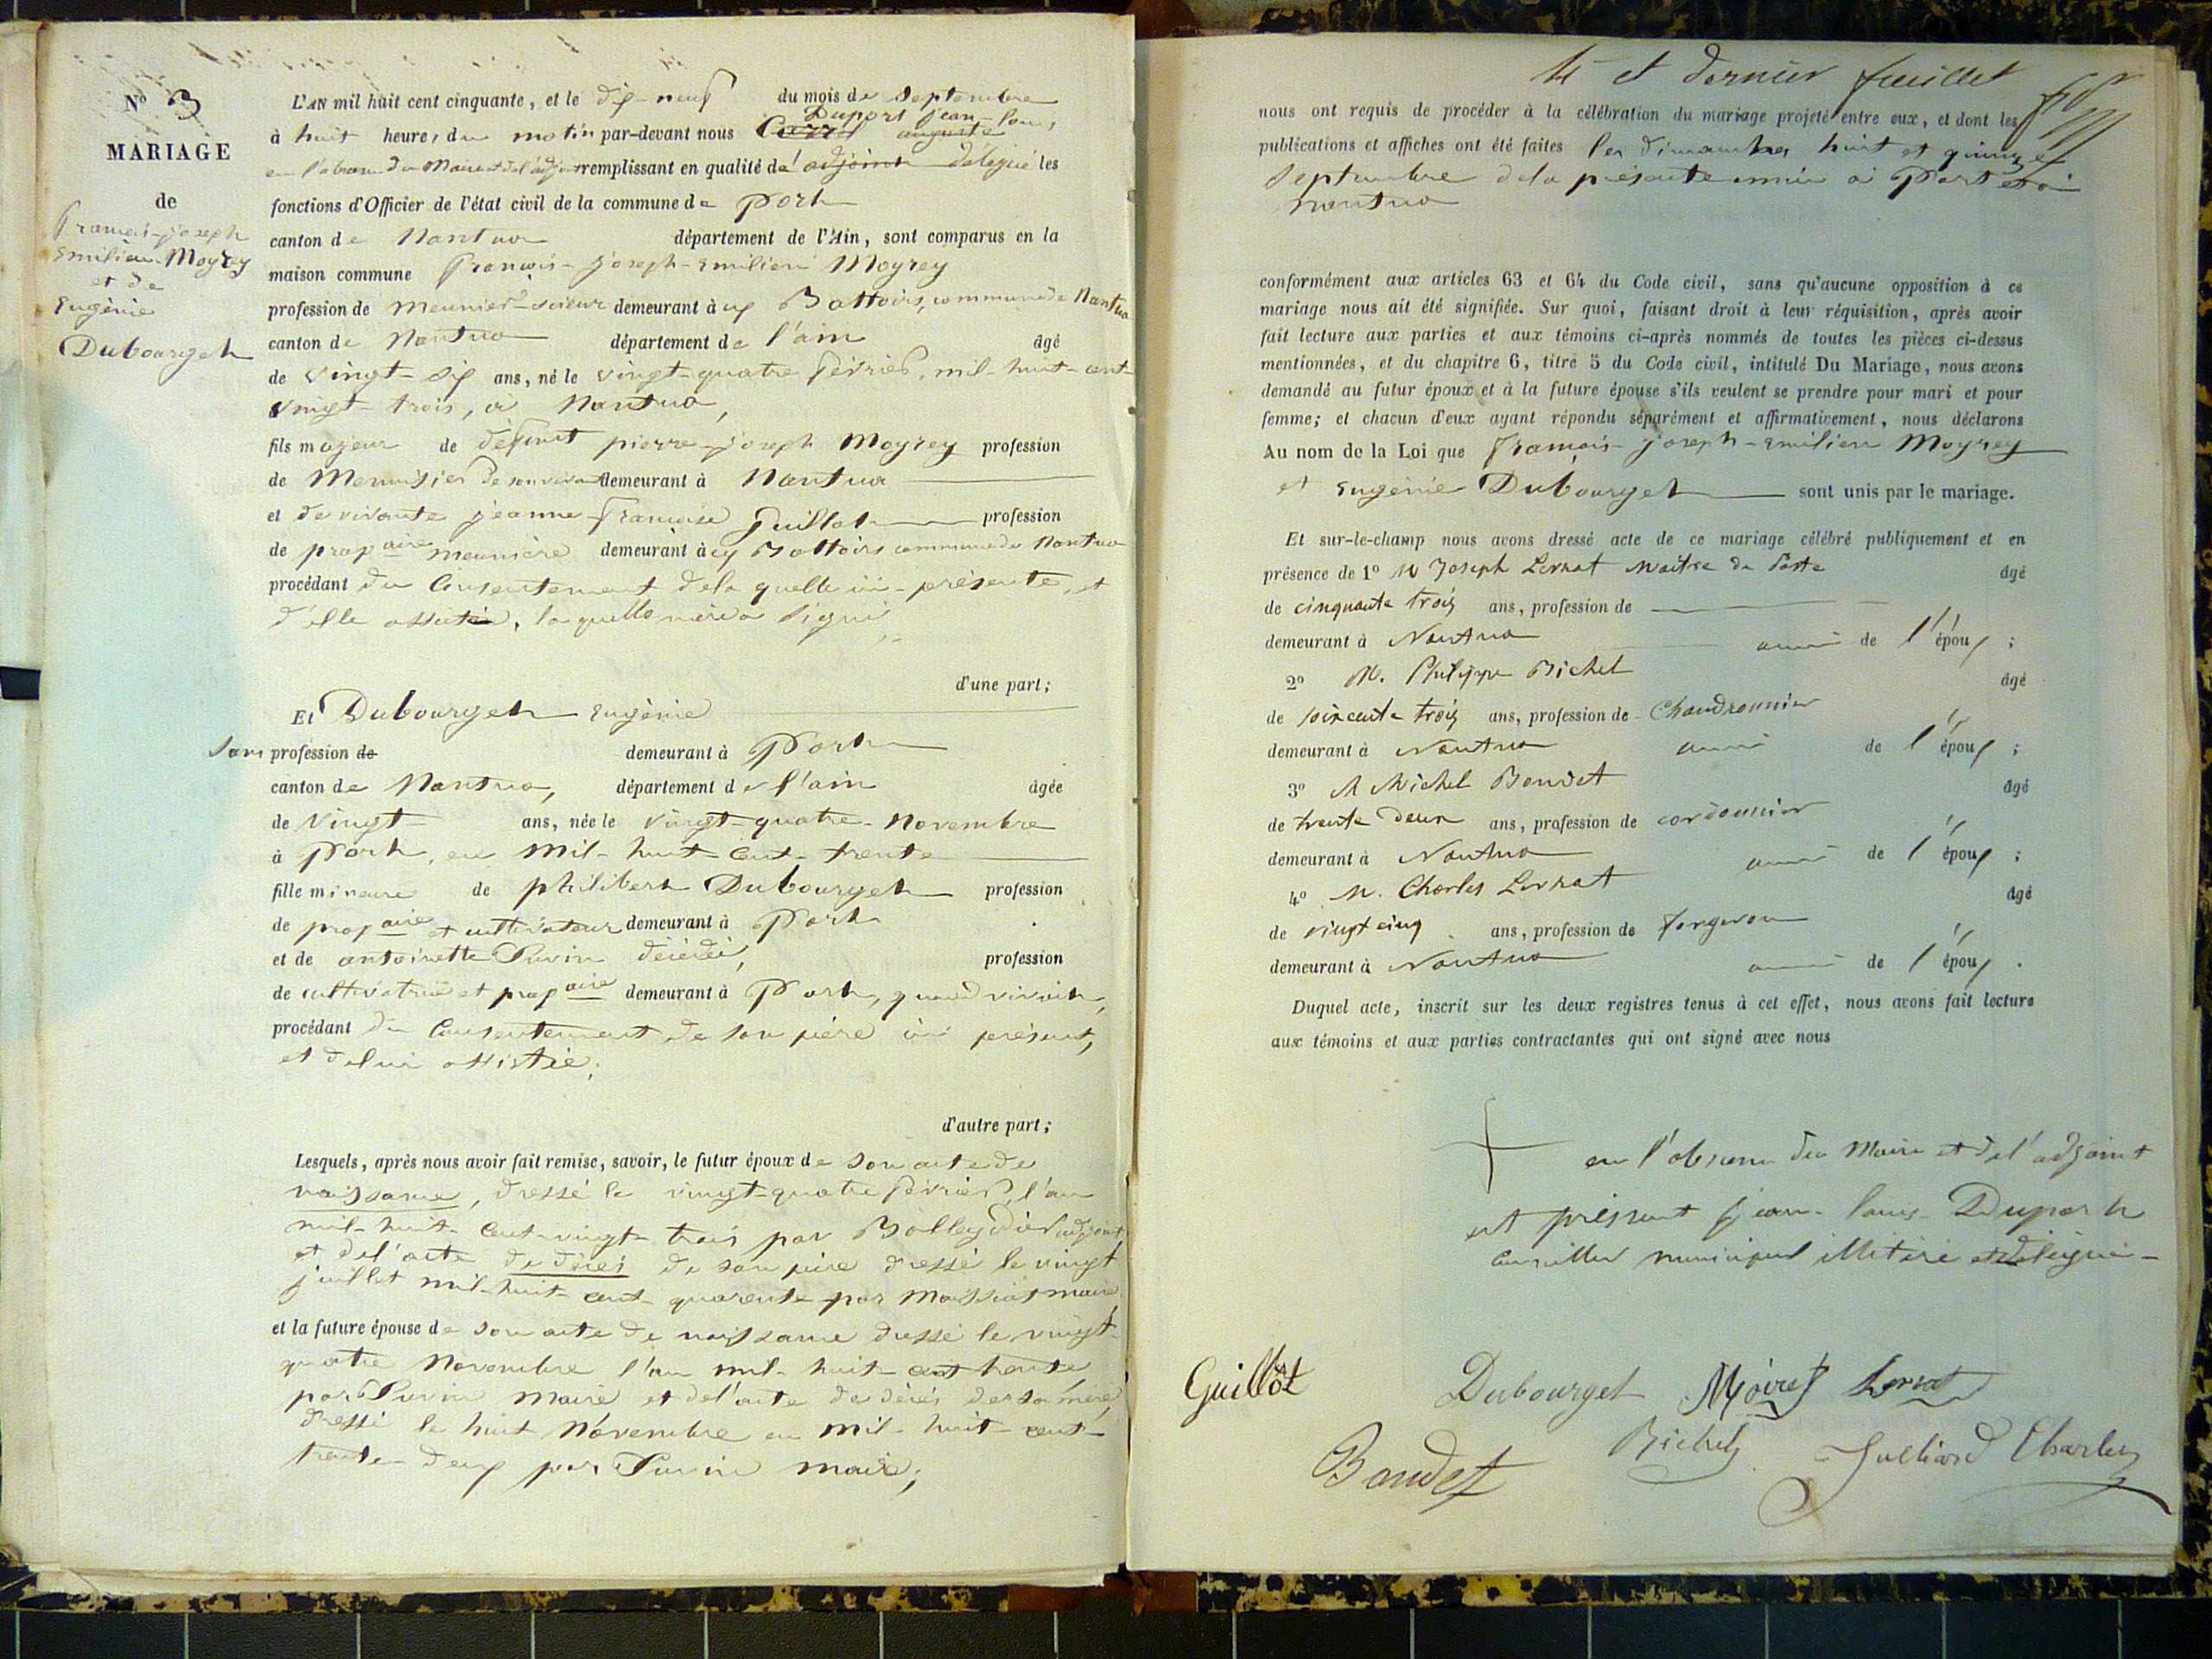 N° 3
MARIAGE
de
François-joseph
Emilien Moyrey
et de
Eugènie
Dubourget
L'AN mil huit cent cinquante, et le dix-neuf du mois de Septembre
Duport jean-louis
à huit heures du matin par-devant nous auguste
en l'absence du Maire et de l'adjoint remplissant en qualité de l'adjoint délégué les
fonctions d'Officier de l'état civil de la commune de Port
canton de Nantua département de l'Ain, sont comparus en la
maison commune François-joseph-Emilien Moyrey
profession de meunier-scieur demeurant à ux Battoirs, commune de Nantua
canton de Nantua département de l'ain âgé
de vingt-six ans, né le vingt-quatre février, mil-huit-cent-
vingt-trois, à Nantua,
fils majeur de défunt pierre-joseph Moyrey profession
de Menuisier de son vivant demeurant à Nantua
et de vivante jeanne-française Guillot profession
de propaire meunière demeurant à ux Battoirs commune de Nantua
procédant du Consentement de la quelle ici-présente, et
d'elle assisté, la quelle mère a signé
d'une part;
Et Dubourget Eugènie
sans profession de demeurant à Port
canton de Nantua, département de l'ain âgée
de vingt ans, née le vingt-quatre-Novembre
à Port, en mil-huit-cent-trente
fille mineure de philibert Dubourget profession
de propaire et cultivateur demeurant à Port
et de antoinette Puvin décédée, profession
de cultivatrice et propaire demeurant à Port, quand vivait,
procédant du Consentement de son père ici présent,
et de lui assistée;
d'autre part;
Lesquels, après nous avoir fait remise, savoir, le futur époux de son acte de
naissance, dressé le vingt-quatre février, l'an
mil-huit-cent-vingt-trois par adjoint
et de l'acte de décès de son père dressé le vingt
juillet mil-huit-cent-quarante par maire,
et la future épouse de son acte de naissance dressé le vingt-
quatre Novembre l'an mil-huit-cent trente
par Puvin maire et de l'acte de décès de sa mère
dressé le huit Novembre en mil-huit-cent-
trente-deux par Puvin maire;
4 et dernier feuillet
nous ont requis de procéder à la célébration du mariage projeté entre eux, et dont les
publications et affiches ont été faites les dimanches huit et quinze
septembre de la présente année à Port et à
Nantua
conformément aux articles 63 et 64 du Code civil, sans qu'aucune opposition à ce
mariage nous ait été signifiée. Sur quoi, faisant droit à leur réquisition, après avoir
fait lecture aux parties et aux témoins ci-après nommés de toutes les pièces ci-dessus
mentionnées, et du chapitre 6, titre 5 du Code civil, intitulé Du Mariage, nous avons
demandé au futur époux et à la future épouse s'ils veulent se prendre pour mari et pour
femme; et chacun d'eux ayant répondu séparément et affirmativement, nous déclarons
Au nom de la Loi que François-joseph-Emilien Moyrey
et Eugènie Dubourget sont unis par le mariage.
Et sur-le-champ nous avons dressé acte de ce mariage célébré publiquement et en
présence de 1° M Joseph Lerrat Maître de Poste âgé
de cinquante trois ans, profession de
demeurant à Nantua ami de l'époux;
2° M. Philippe Bichet âgé
de soixante trois ans, profession de Chaudronnier
demeurant à Nantua ami de l'époux;
3° M Michel Baudet âgé
de trente deux ans, profession de cordonnier
demeurant à Nantua ami de l'époux;
4° M. Charles Lerrat âgé
de vingt cinq ans, profession de forgeron
demeurant à Nantua ami de l'époux.
Duquel acte, inscrit sur les deux registres tenus à cet effet, nous avons fait lecture
aux témoins et aux parties contractantes qui ont signé avec nous
en l'absence du Maire et de l'adjoint
est présent jean-louis Duport
conseiller municipal illitéré et délégué-
Guillot Dubourget Moirey Lerrat
Baudet Bichet Julliard Charles